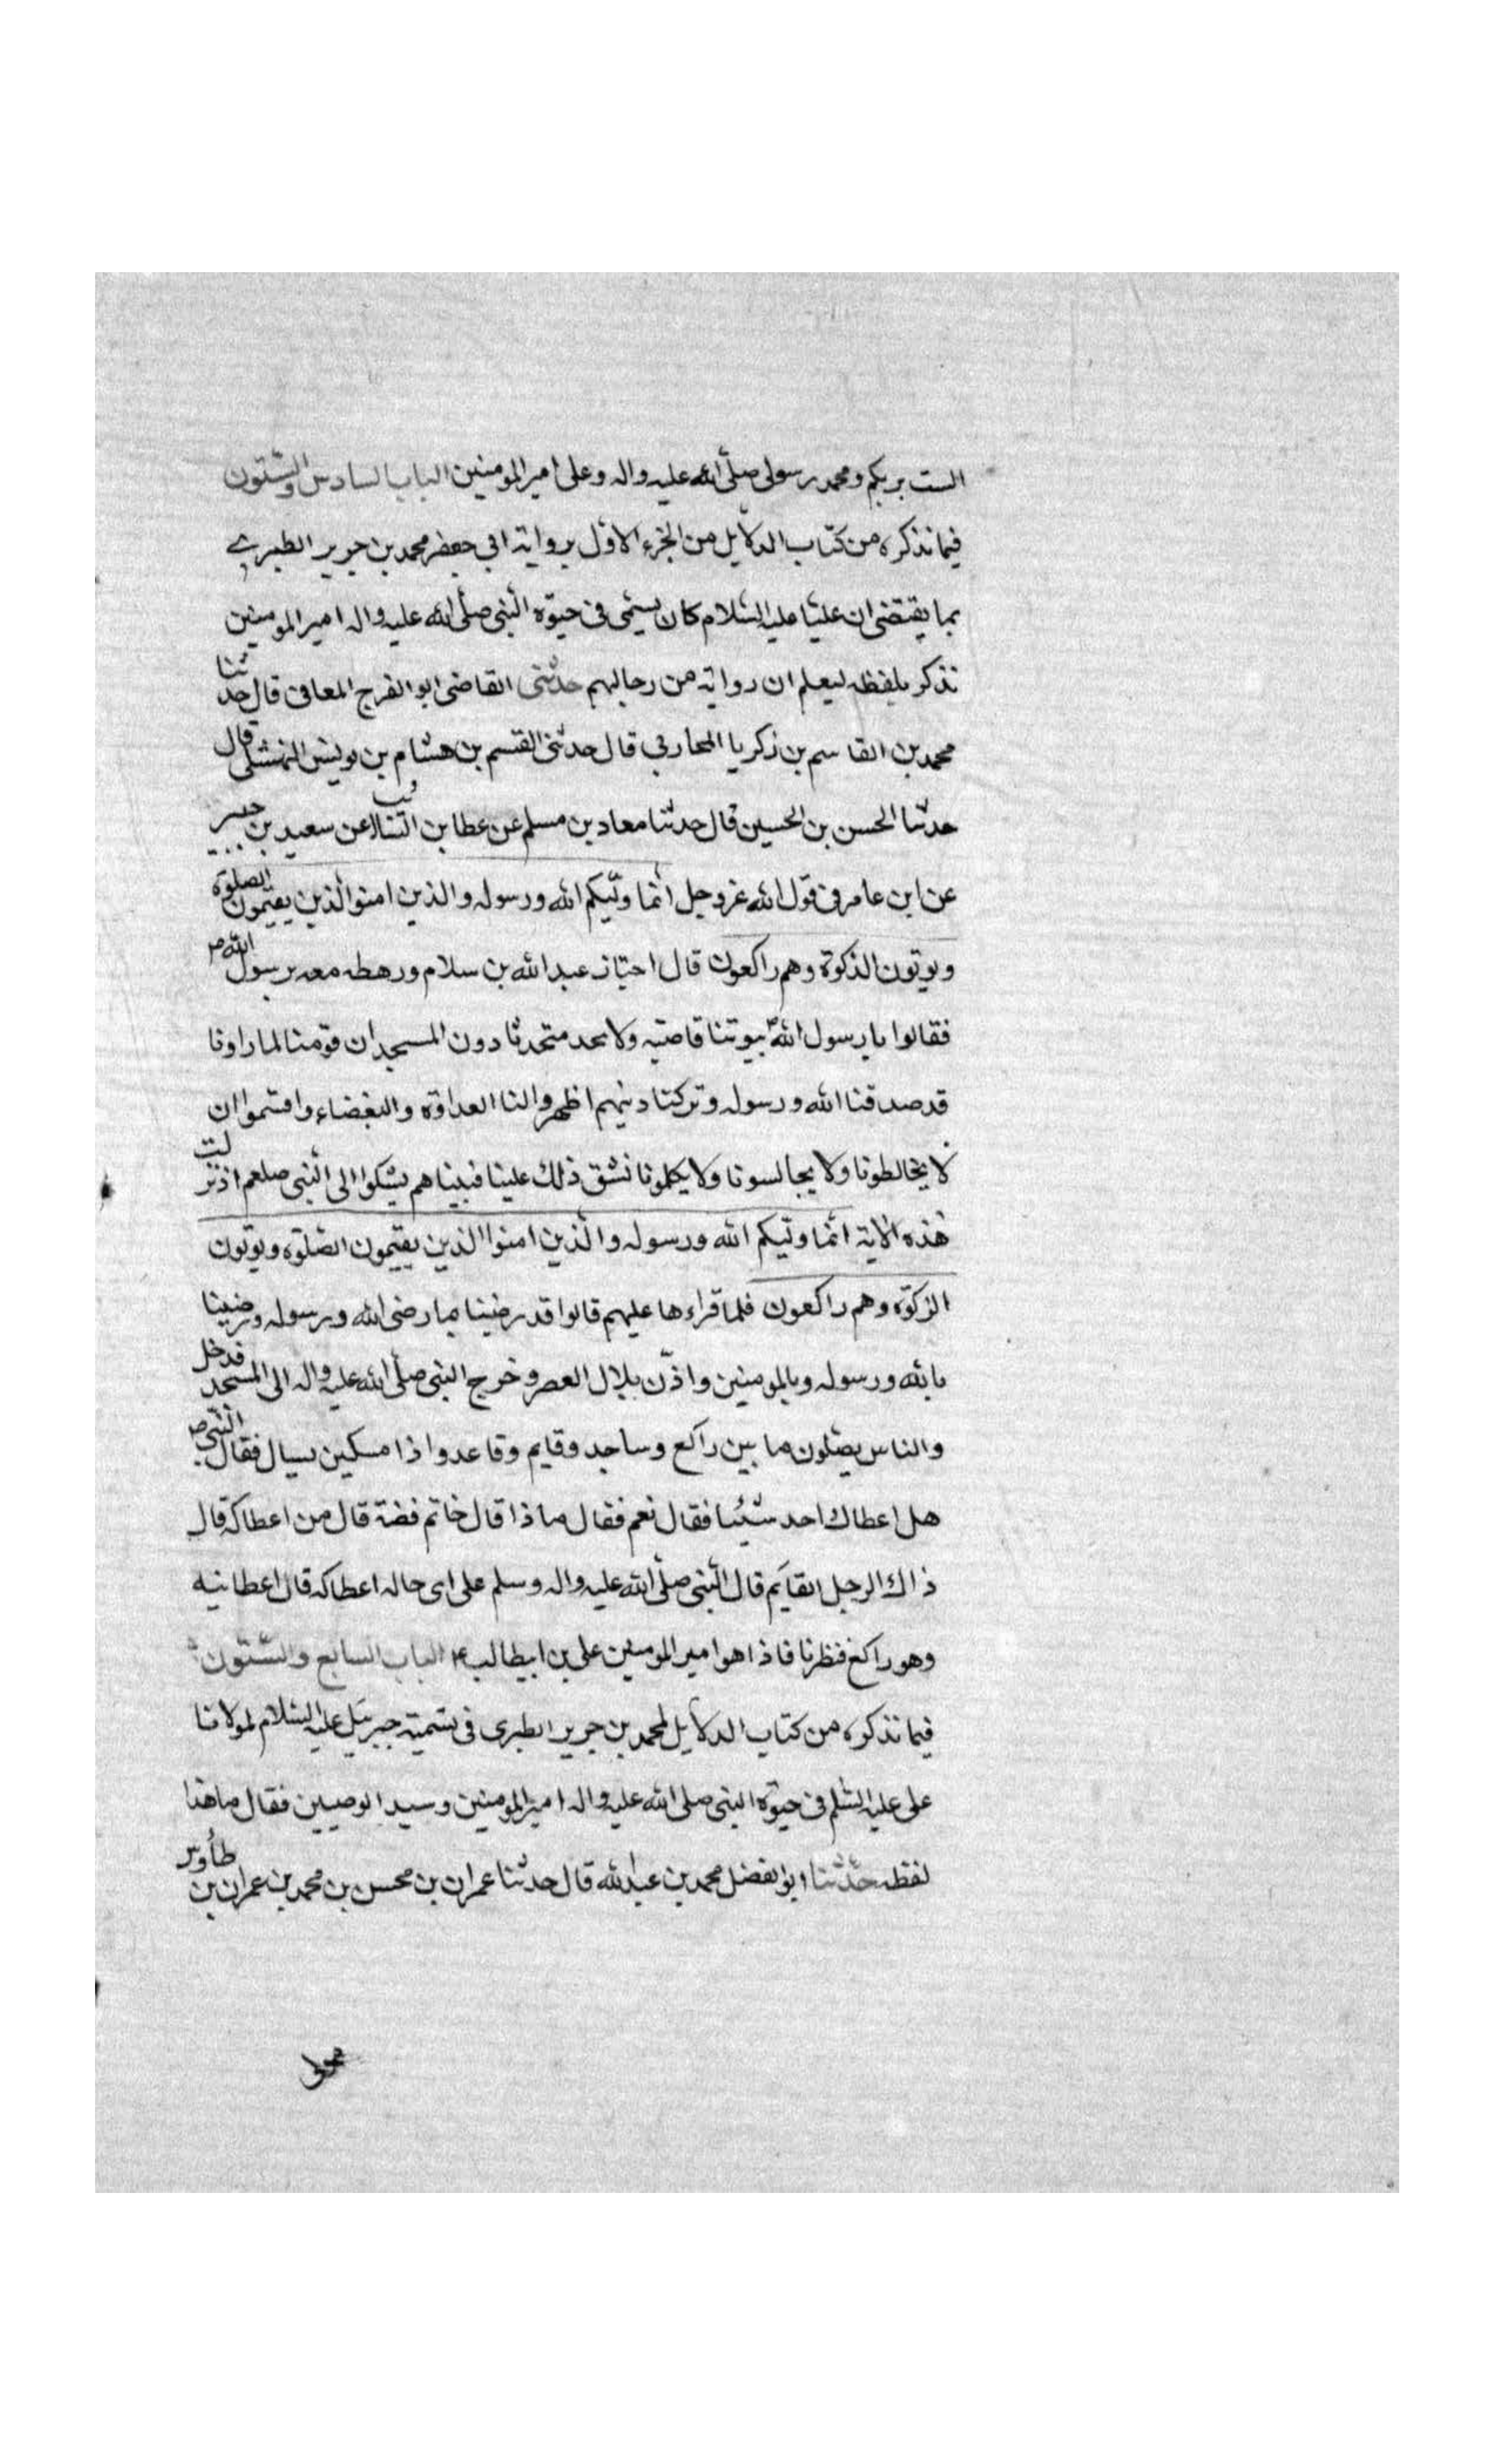 الست بربكم ومحمد رسولى صلّى الله عليه واله وعلى امير المومنين الباب السادس والستّون
فيما نذكره من كتاب الدلايل من الجزء الاوّل برواية ابي جعفر محمد بن جرير الطبرى
بما يقتضى ان عليّا عليه السّلام كان يسمّى فى حيوة النّبى صلّى الله عليه واله امير المومنين
نذكر بلفظه ليعلم ان رواته من رجالهم حدثنى القاضى ابو الفرج المعافى قال حدثنا
محمد بن القاسم بن زكريا المحاربي قال حدثنى القسم بن هشام بن يونس النهشلى قال
حدثنا الحسن بن الحسين قال حدثنا معاد بن مسلم عن عطا بن السّايب عن سعيد بن جبير
عن ابن عامر فى قول الله عزوجل انّما وليّكم الله ورسوله والذين امنوا الّذين يقيمون الصلوة
ويوتون الذكوة وهم راكعون قال اجتاز عبد الله بن سلام ورهطه معه برسول الله ص
فقالوا يا رسول الله بيوتنا قاصيه ولا نجد متحدثا دون المسجد ان قومنا لما راونا
قد صدقنا الله ورسوله وتركنا دينهم اظهروا لنا العداوة والبغضاء واقسموا ان
لا يخالطونا ولا يجالسونا ولا يكلمونا فشق ذلك علينا فبيناهم يشكوا الى النّبى صلعم اذ نزلت
هذه الاية انّما وليّكم الله ورسوله والّذين امنوا الذين يقيمون الصّلوة ويوتون
الزكوة وهم راكعون فلما قراءها عليهم قالوا قد رضينا بما رضى الله ورسوله ورضينا
بالله ورسوله وبالمومنين واذّن بلال العصر وخرج النبى صلّى الله عليه واله الى المسجد فدخل
والناس يصلون ما بين راكع وساجد وقايم وقاعد واذا مسكين يسال فقال النّبى ص
هل اعطاك احد شيئا فقال نعم فقال ماذا قال خاتم فضة قال من اعطاكه قال
ذاك الرجل القايم قال النّبى صلّى الله عليه واله وسلم على اى حاله اعطاكه قال اعطانيه
وهو راكع فنظرنا فاذا هو امير المومنين على بن ابيطالب ع الباب السابع والستّون
فيما نذكره من كتاب الدلايل لمحمد بن جرير الطبرى فى تسمية جبرئيل عليه السّلام لمولانا
على عليه السّلم فى حيوة النبى صلى الله عليه واله امير المومنين وسيد الوصيين فقال ما هذا
لفظه حدّثنا ابو الفضل محمد بن عبد الله قال حدثنا عمران بن محسن بن محمد بن عمران بن طاوس